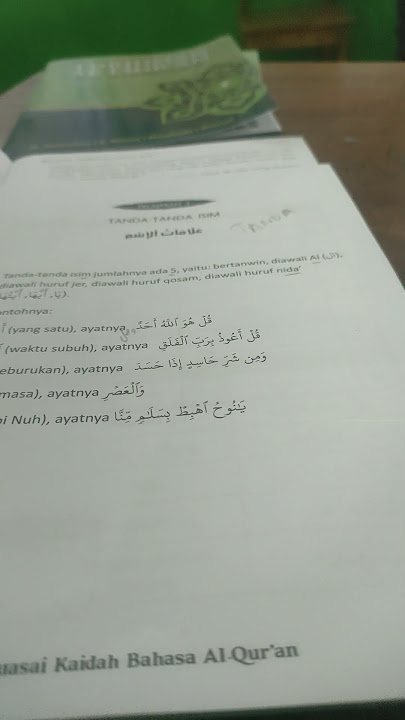 TANDA-TANDA ISIM
علامات الإسم
Tanda
Tanda-tanda isim jumlahnya ada 5, yaitu: bertanwin, diawali Al (ال),
diawali huruf jer, diawali huruf qosam, diawali huruf nida'
(يَا، أَيُّهَا، أَيَّتُهَا).
ontohnya:
(yang satu), ayatnya قُلْ هُوَ ٱللَّهُ أَحَدٌ
(waktu subuh), ayatnya قُلْ أَعُوذُ بِرَبِّ ٱلْفَلَقِ
eburukan), ayatnya وَمِن شَرِّ حَاسِدٍ إِذَا حَسَدَ
masa), ayatnya وَٱلْعَصْرِ
bi Nuh), ayatnya يَـٰنُوحُ ٱهْبِطْ بِسَلَـٰمٍ مِّنَّا
uasai Kaidah Bahasa Al-Qur'an